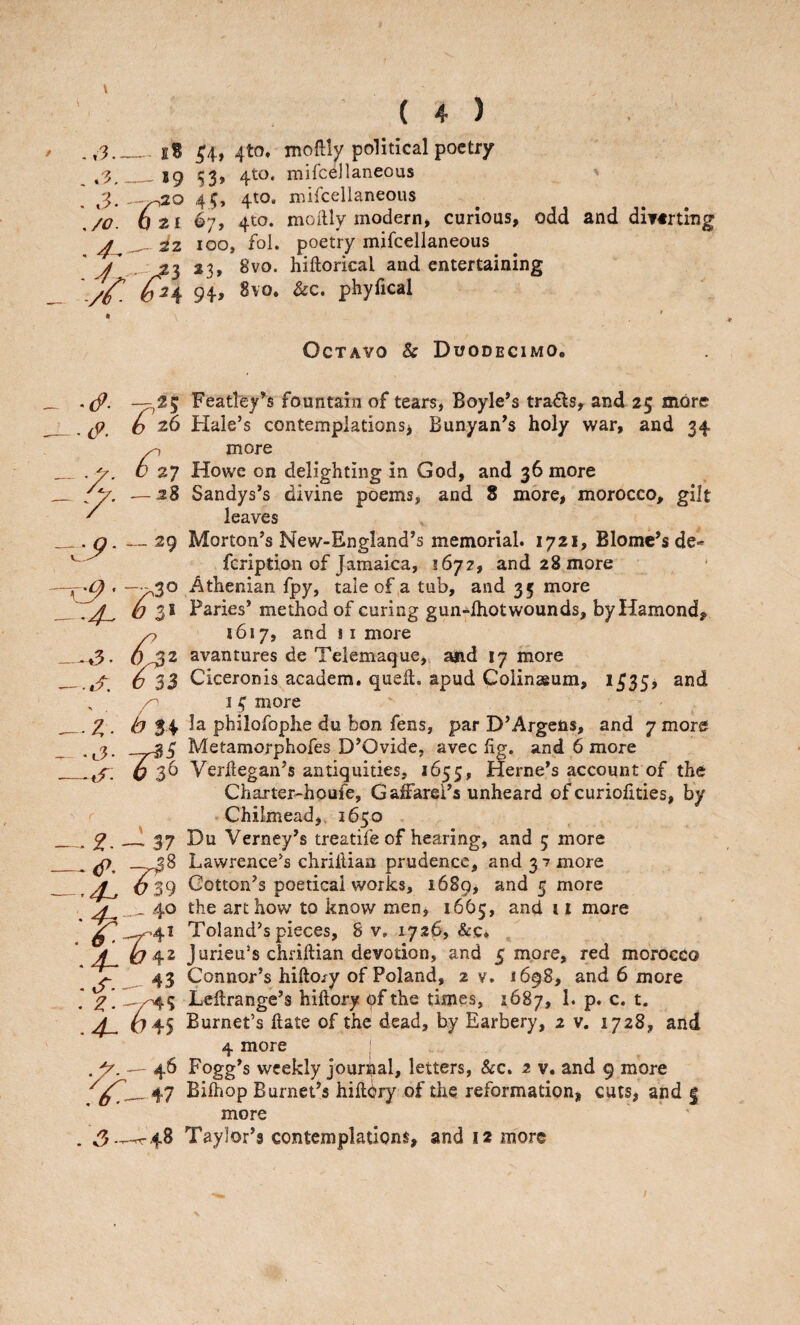 ( 4 )
.3. — 18 54, 4to. moſtly political poetry
.3. — 19 53, 4to. miſcellaneous
.3. — 20 45, 4to. miſcellaneous
.10. 6 21 67, 4to. moſtly modern, curious, odd and diverting
.4. — 22 100, fol. poetry miſcellaneous
.4. — 23 23, 8vo. hiſtorical and entertaining
6 24 94, 8vo. &c. phyſical
OCTAVO & DUODECIMO.
— 25 Featley's fountain of tears, Boyle's tracts, and 25 more
6 26 Hale's contemplations, Bunyan's holy war, and 34
more
6 27 Howe on delighting in God, and 36 more
— 28 Sandys's divine poems, and 8 more, morocco, gilt
leaves
.9. — 29 Morton's New-England's memorial. 1721, Blome's de-
ſcription of Jamaica, 1672, and 28 more
.9. — 30 Athenian ſpy, tale of a tub, and 35 more
.4. 6 31 Paries' method of curing gun-ſhot wounds, by Hamond,
1617, and 11 more
.3. 6 32 avantures de Telemaque, and 17 more
.5. 6 33 Ciceronis academ. queſt. apud Colinæum, 1535, and
15 more
.2. 6 34 la philoſophe du bon ſens, par D'Argens, and 7 more
.3. — 35 Metamorphoſes D'Ovide, avec fig. and 6 more
.5. 6 36 Verſtegan's antiquities, 1655, Herne's account of the
Charter-houſe, Gaffarel's unheard of curioſities, by
Chilmead, 1650
.2. — 37 Du Verney's treatiſe of hearing, and 5 more
— 38 Lawrence's chriſtian prudence, and 37 more
.4. 6 39 Cotton's poetical works, 1689, and 5 more
.4. — 40 the art how to know men, 1665, and 11 more
— 41 Toland's pieces, 8 v. 1726, &c.
.4. 6 42 Jurieu's chriſtian devotion, and 5 more, red morocco
.5. — 43 Connor's hiſtory of Poland, 2 v. 1698, and 6 more
.2. — 45 Leſtrange's hiſtory of the times, 1687, l. p. c. t.
.4. 6 45 Burnet's ſtate of the dead, by Earbery, 2 v. 1728, and
4 more
.7. — 46 Fogg's weekly journal, letters, &c. 2 v. and 9 more
— 47 Biſhop Burnet's hiſtory of the reformation, cuts, and 5
more
.3. — 48 Taylor's contemplations, and 12 more